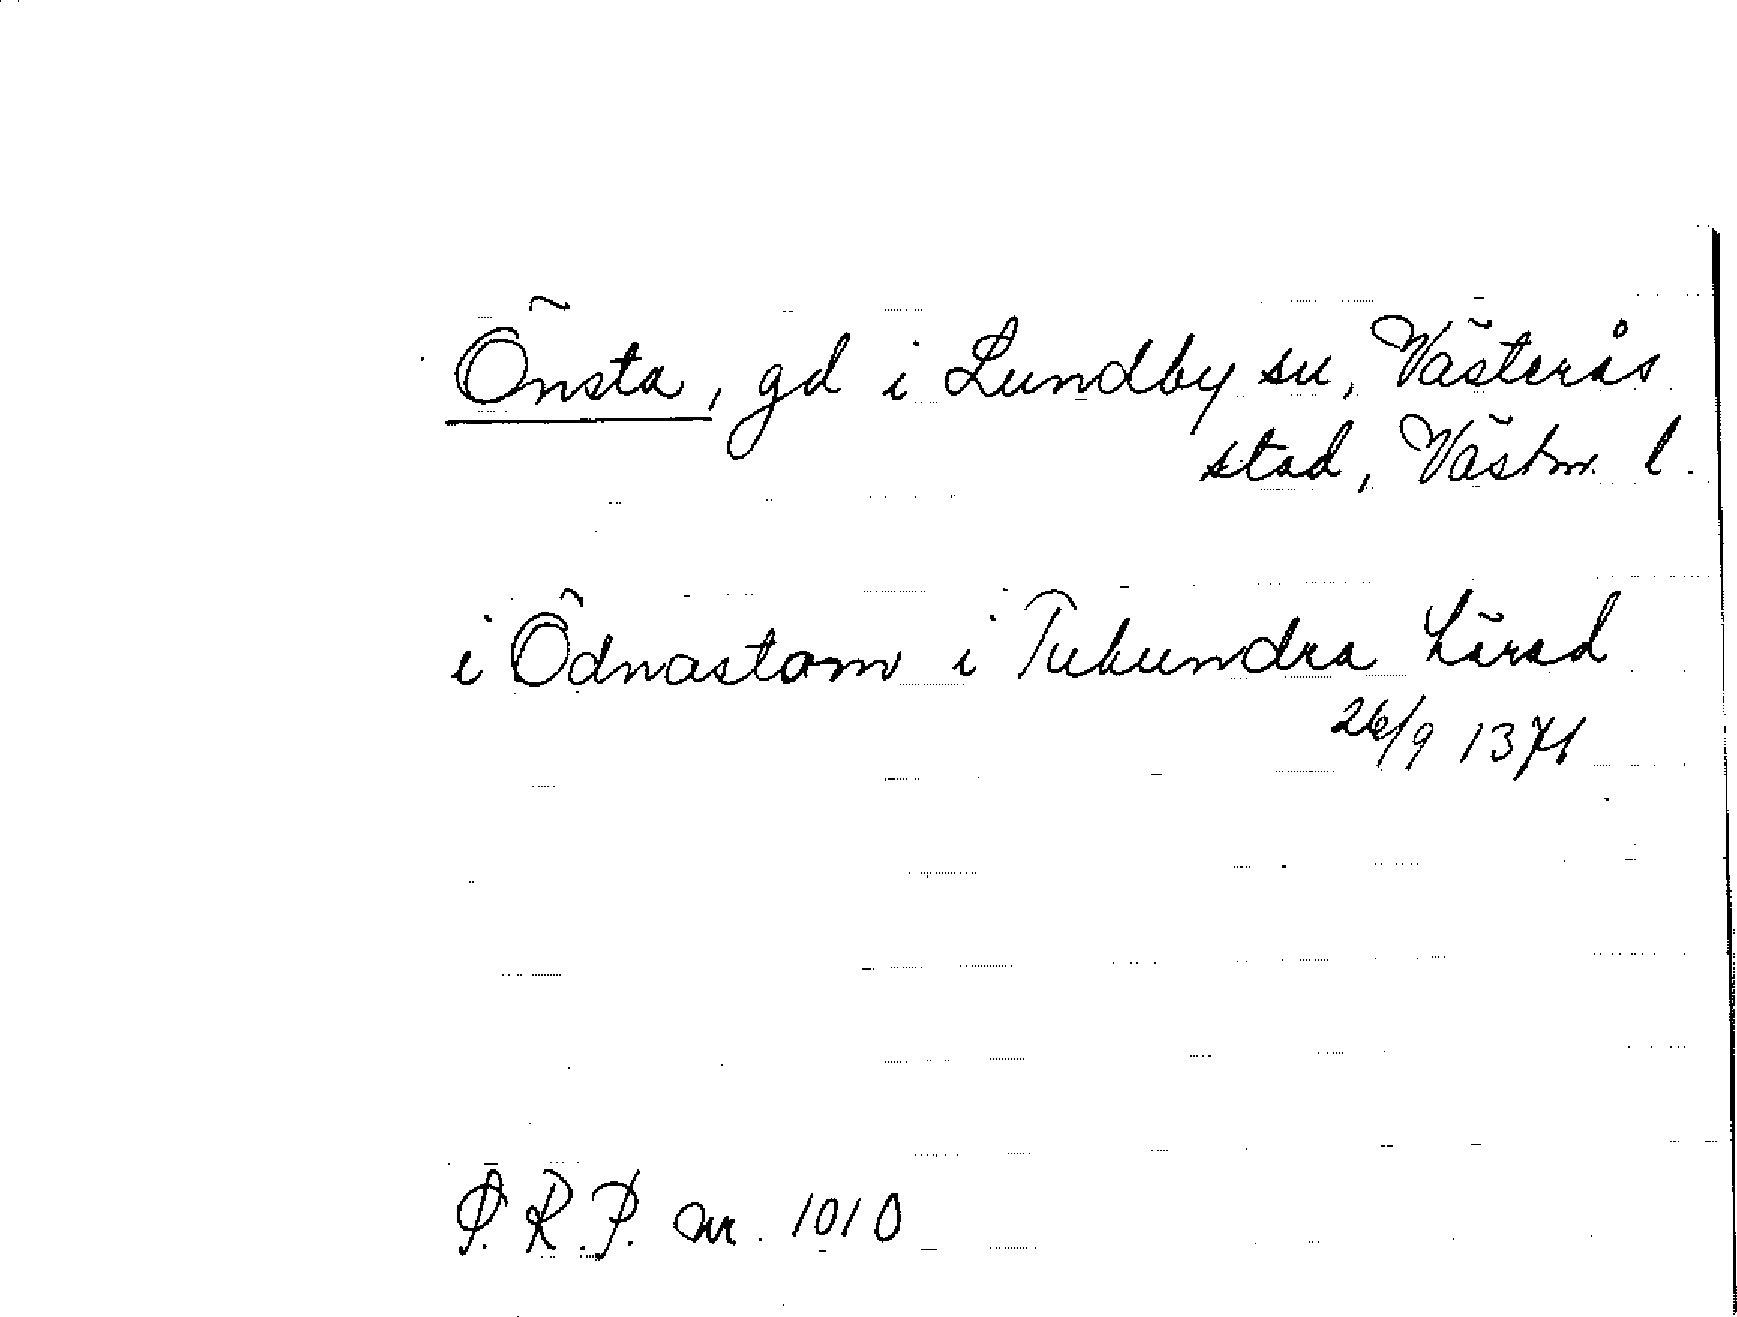 Önsta, gd i Lundby sn, Västerås
stad, Västm. l.
i Ödnastom i Tuhundra härad
26/9 1371
P.R.P. nr. 1010